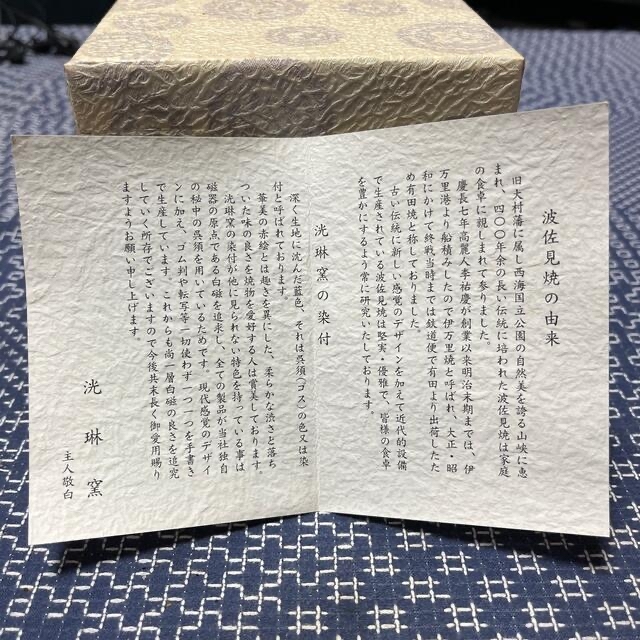 波佐見焼の由来
旧大村藩に属し西海国立公園の自然美を誇る山峡に恵
まれ、四〇〇年余の長い伝統に培われた波佐見焼は家庭
の食卓に親しまれて参りました。
慶長七年高麗人李祐慶が創業以来明治末期までは、伊
万里港より船積みしたので伊万里焼と呼ばれ、大正・昭
和にかけて終戦当時までは鉄道便で有田より出荷したた
め有田焼と称しておりました。
古い伝統に新しい感覚のデザインを加えて近代的設備
で生産されている波佐見焼は堅実・優雅で、皆様の食卓
を豊かにするよう常に研究いたしております。
洸琳窯の染付
深く生地に沈んだ藍色、それは呉須（ゴス）の色又は染
付と呼ばれております。
華美の赤絵とは趣きを異にした、柔らかな渋さと落ち
ついた味の良さを焼物を愛好する人は賞美しております。
洸琳窯の染付が他に見られない特色を持っている事は
磁器の原点である白磁を追求し、全ての製品が当社独自
の秘中の呉須を用いているためです。現代感覚のデザイ
ンに加え、ゴム判や転写等一切使わず一つ一つを手書き
で生産しています。これからも尚一層白磁の良さを追究
していく所存でございますので今後共末長く御愛用賜り
ますようお願い申し上げます。
洸琳窯
主人敬白